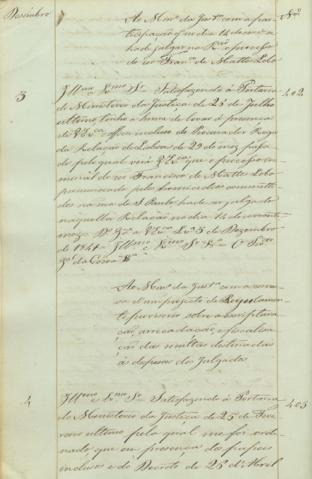 Dezembro
Nº
Ao Minº da Justª com a par-
ticipação q' no dia 14 do corre.
ha de julgar na Rªm o processo
do reo Franco de Mattos Lobo
3
402
Illmo e Exmo Sr Satisfazendo á Portaria
do Ministerio da Justiça de 23 de Julho
ultimo, tenho a honra de levar á presença
de VExca o officio incluso do Procurador Regio
da Relação de Lisboa de 29 do mez passa-
do pelo qual verá VExca que o processo cri-
me do réo Francisco de Mattos Lobo
pronunciado pelos homicidios commetti-
dos na rua de S. Paulo, ha de ser julgado
naquella Relação no dia 14 do corrente
mez. Ds Ge a VExca Lxª 3 de Dezembro
de 1841 Illmo e Exmo Sr
Gal da Coroa
Ao Minº da Justª com a remes-
sa d'um projecto de Regulamen-
to provisorio sobre a escriptura-
ção, arrecadação, e fiscalisa-
ção das multas destinadas
ás despezas dos Julgados
4
403
Illmo e Exmo Sr Satisfazendo á Portaria
do Ministerio da Justiça de 25 de Feve-
reiro ultimo pela qual me foi orde-
nado que em presença dos papeis
inclusos e do Decreto de 25 d'Abril